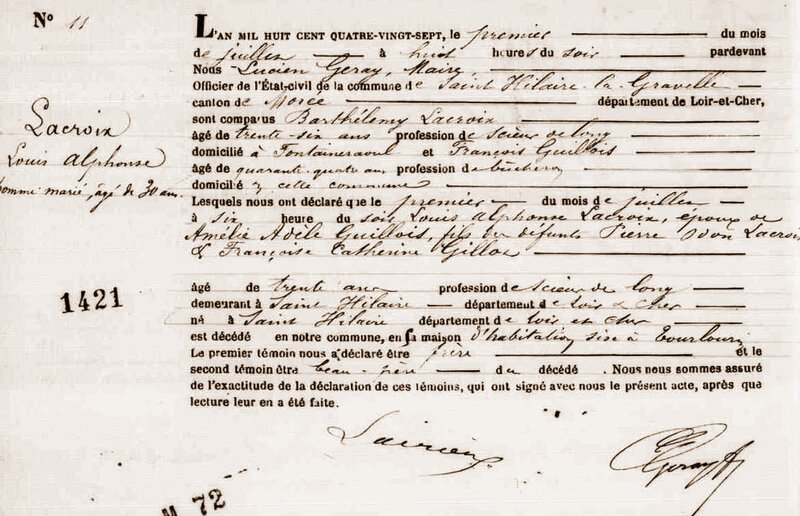 N° 11
L'AN MIL HUIT CENT QUATRE-VINGT-SEPT, le premier du mois
de juillet à huit heures du soir pardevant
Nous Lucien Geray, Maire
Officier de l'État-civil de la commune de Saint Hilaire la Gravelle
canton de Morée département de Loir-et-Cher,
sont comparus Barthélemy Lacroix
âgé de trente-six ans profession de scieur de long
domicilié à Fontaineraoul et François Guillois
âgé de quarante quatre ans profession de bûcheron
domicilié à cette commune
Lesquels nous ont déclaré que le premier du mois de juillet
à six heure du soir, Louis Alphonse Lacroix, époux de
Amélie Adèle Guillois, fils des défunts Pierre Lacroix
& Françoise Catherine
âgé de trente ans profession de scieur de long
demeurant à Saint Hilaire département de Loir & Cher
né à Saint Hilaire département de Loir et Cher
est décédé en notre commune, en sa maison d'habitation sise à
Le premier témoin nous a déclaré être frère et le
second témoin être beau-père du décédé. Nous nous sommes assuré
de l'exactitude de la déclaration de ces témoins, qui ont signé avec nous le présent acte, après que
lecture leur en a été faite.
Lacroix
Louis Alphonse
homme marié, âgé de 30 ans
1421
Geray
M 72